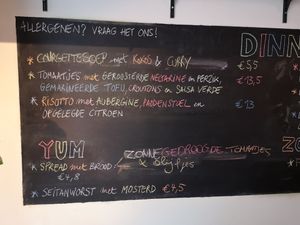 ALLERGENEN? VRAAG HET ONS!
DINN
* COURGETTESOEP met KOKOS & CURRY €5,5
* TOMAATJES met GEROOSTERDE NECTARINE en PERZIK, €13,5
GEMARINEERDE TOFU, CROUTONS en SALSA VERDE
* RISOTTO met AUBERGINE, PADDENSTOEL en €13
OPGELEGDE CITROEN
YUM
ZONNEGEDROOGDE TOMAATJES
* SPREAD met BROOD
& Olijfjes
€4,8
* SEITANWORST met MOSTERD €4,5
ZO